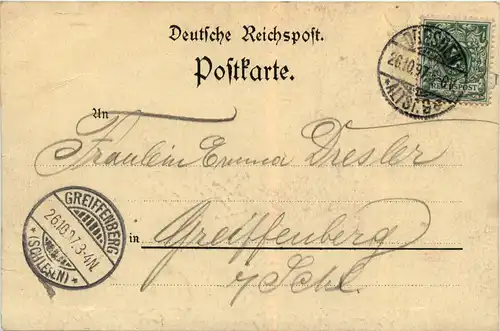 Deutsche Reichspost.
Postkarte.
REICHSPOST
26.10.97
An
Fräulein Emma Dresler
in Greiffenberg
i/Schl.
GREIFFENBERG
26.10.97. 3-4N.
* (SCHLESN) *